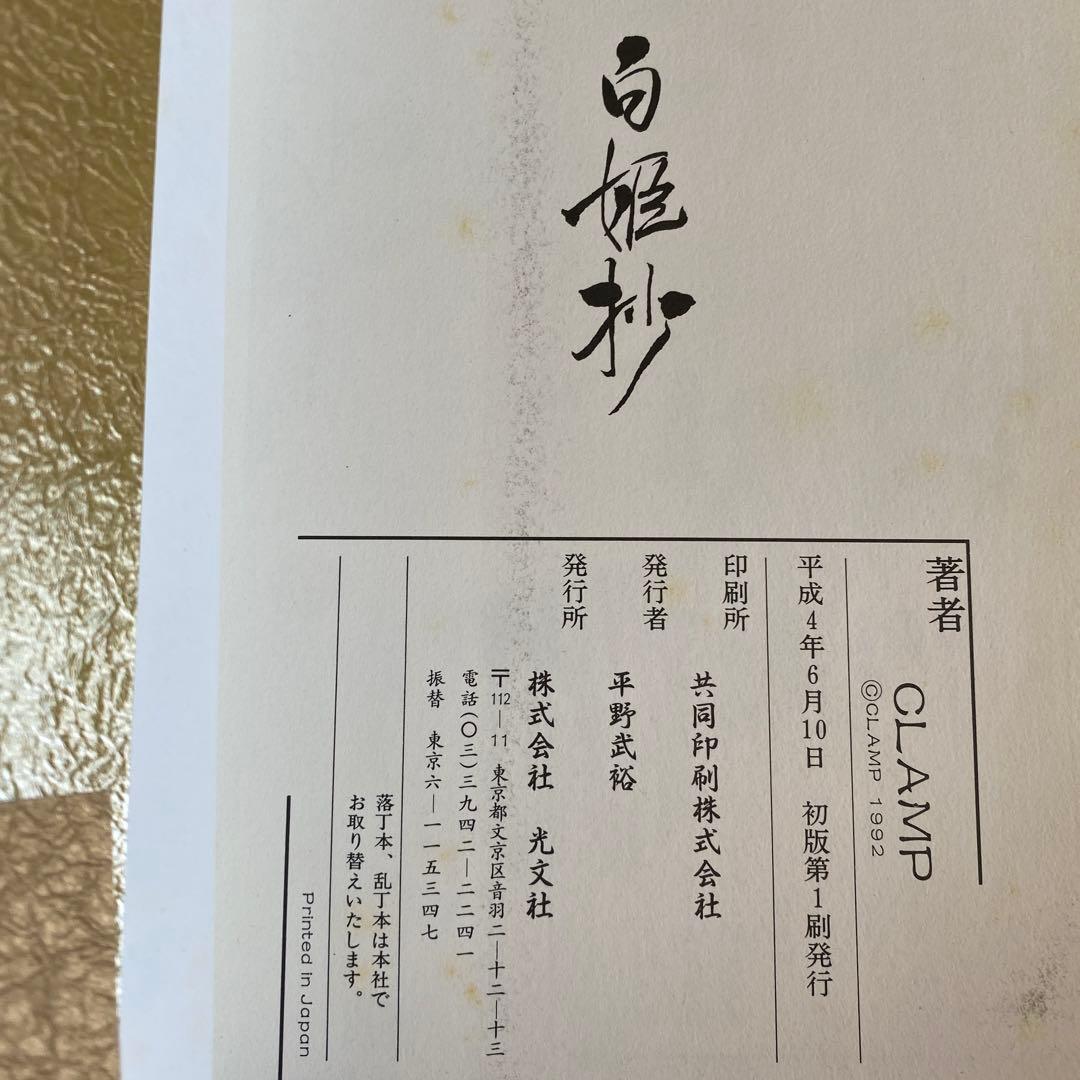 白姫抄
著者 CLAMP
©CLAMP 1992
平成4年6月10日 初版第1刷発行
印刷所 共同印刷株式会社
発行者 平野武裕
発行所 株式会社 光文社
〒112―11 東京都文京区音羽二―十二―十三
電話(〇三)三九四二―二二四一
振替 東京六―一一五三四七
落丁本、乱丁本は本社で
お取り替えいたします。
Printed in Japan